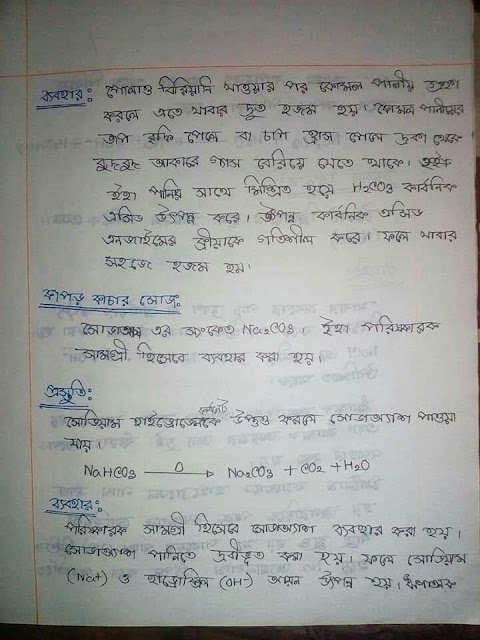 ব্যবহার: পোলাও বিরিয়ানি খাওয়ার পর কোমল পানীয় গ্রহণ
করলে এতে খাবার দ্রুত হজম হয়। কোমল পানীয়ের
তাপ বৃদ্ধি পেলে বা চাপ হ্রাস পেলে দ্রবণ থেকে
বুদবুদ আকারে গ্যাস বেরিয়ে যেতে থাকে।
ইহা পানির সাথে মিশ্রিত হয়ে H₂CO₃ কার্বনিক
এসিড উৎপন্ন করে। উৎপন্ন কার্বনিক এসিড
এনজাইমের ক্রীয়াকে গতিশীল করে। ফলে খাবার
সহজে হজম হয়।
কাপড় কাচার সোডা:
সোডাঅ্যাস এর সংকেত Na₂CO₃। ইহা পরিষ্কারক
সামগ্রী হিসেবে ব্যবহার করা হয়।
প্রস্তুতি:
সোডিয়াম হাইড্রোজেন কার্বনেটকে উত্তপ্ত করলে সোডাঅ্যাশ পাওয়া
যায়।
NaHCO₃ —Δ→ Na₂CO₃ + CO₂ + H₂O
ব্যবহার:
পরিষ্কারক সামগ্রী হিসেবে সোডাঅ্যাশ ব্যবহার করা হয়।
সোডাঅ্যাশ পানিতে দ্রবীভূত করা হয়। ফলে সোডিয়াম
(Na+) ও হাইড্রোক্সিল (OH⁻) আয়ন উৎপন্ন হয়।